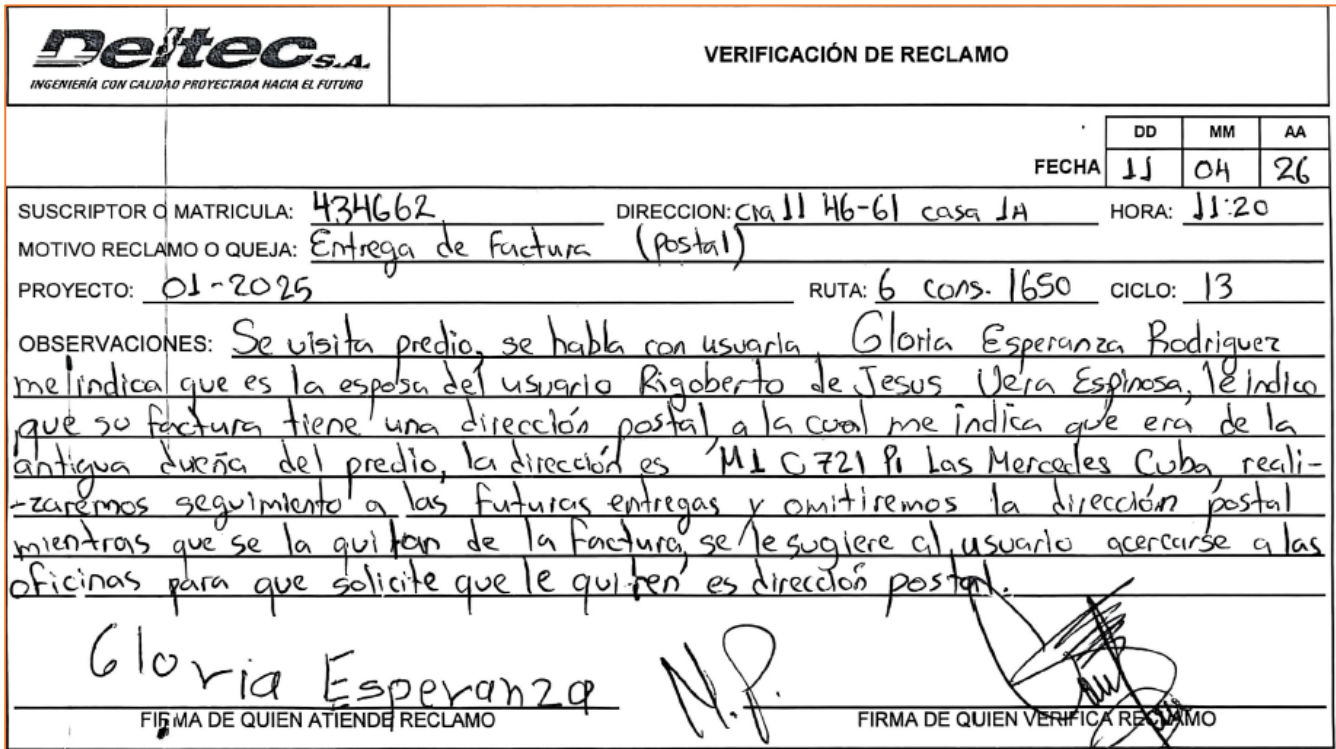 Deltec S.A.
INGENIERÍA CON CALIDAD PROYECTADA HACIA EL FUTURO
VERIFICACIÓN DE RECLAMO
DD MM AA
FECHA 11 04 26
SUSCRIPTOR O MATRICULA: 434662 DIRECCION: Cra 11 46-61 casa 1A HORA: 11:20
MOTIVO RECLAMO O QUEJA: Entrega de factura (postal)
PROYECTO: 01-2025 RUTA: 6 cons. 1650 CICLO: 13
OBSERVACIONES: Se visita predio, se habla con usuaria Gloria Esperanza Rodriguez
me indica que es la esposa del usuario Rigoberto de Jesus Vera Espinosa, le indico
que su factura tiene una dirección postal a la cual me indica que era de la
antigua dueña del predio, la dirección es M1 C721 Pi Las Mercedes Cuba, reali-
-zaremos seguimiento a las futuras entregas y omitiremos la dirección postal
mientras que se la quitan de la factura, se le sugiere al usuario acercarse a las
oficinas para que solicite que le quiten es dirección postal.
Gloria Esperanza N.P.
FIRMA DE QUIEN ATIENDE RECLAMO FIRMA DE QUIEN VERIFICA RECLAMO